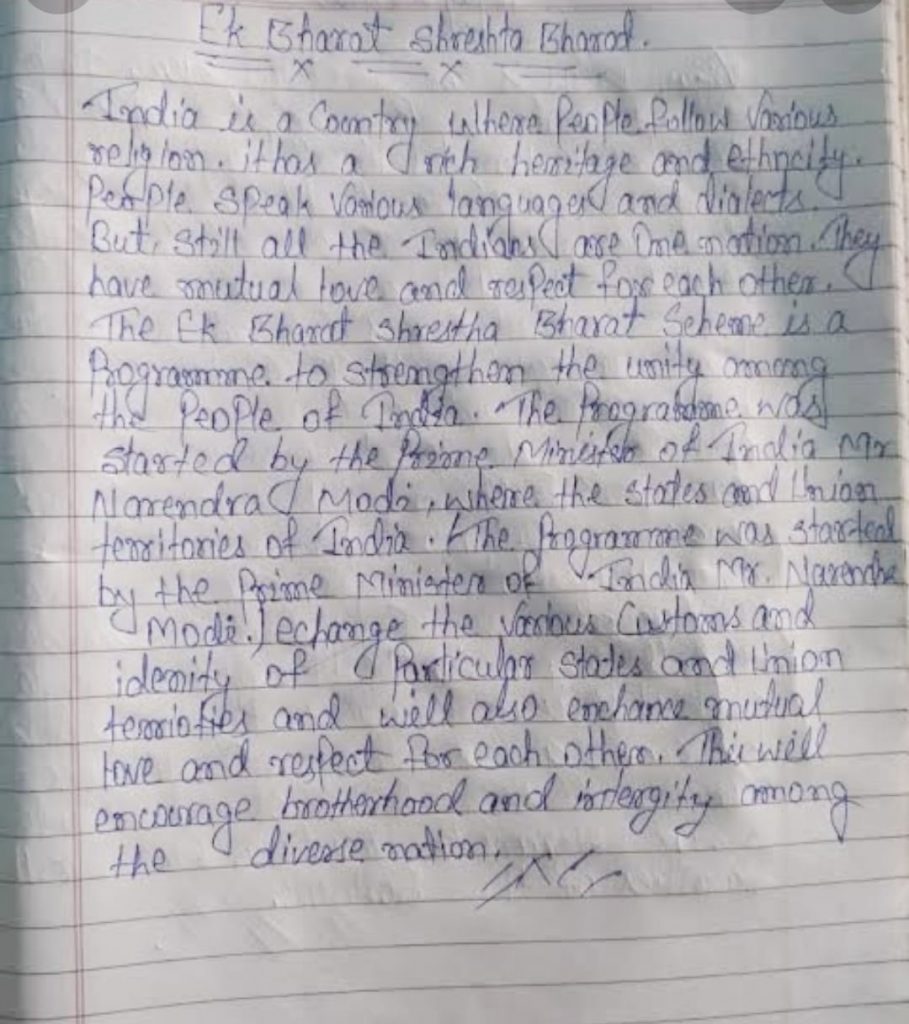 Ek Bharat Shreshta Bharat.
India is a Country where People follow Various
religion. it has a rich heritage and ethncity.
People speak Various languages and dialects.
But, still all the Indians are One nation. They
have mutual love and respect for each other.
The Ek Bharat Shrestha Bharat Scheme is a
Programme to strengthen the unity among
the People of India. The Programme was
started by the Prime Minister of India Mr
Narendra Modi, where the states and Union
territories of India. The Programme was started
by the Prime Minister of India Mr. Narendra
Modi. echange the various Customs and
idenity of Particular states and Union
terrioties and will also enchance mutual
love and respect for each other. This will
encourage brotherhood and intergity among
the diverse nation.